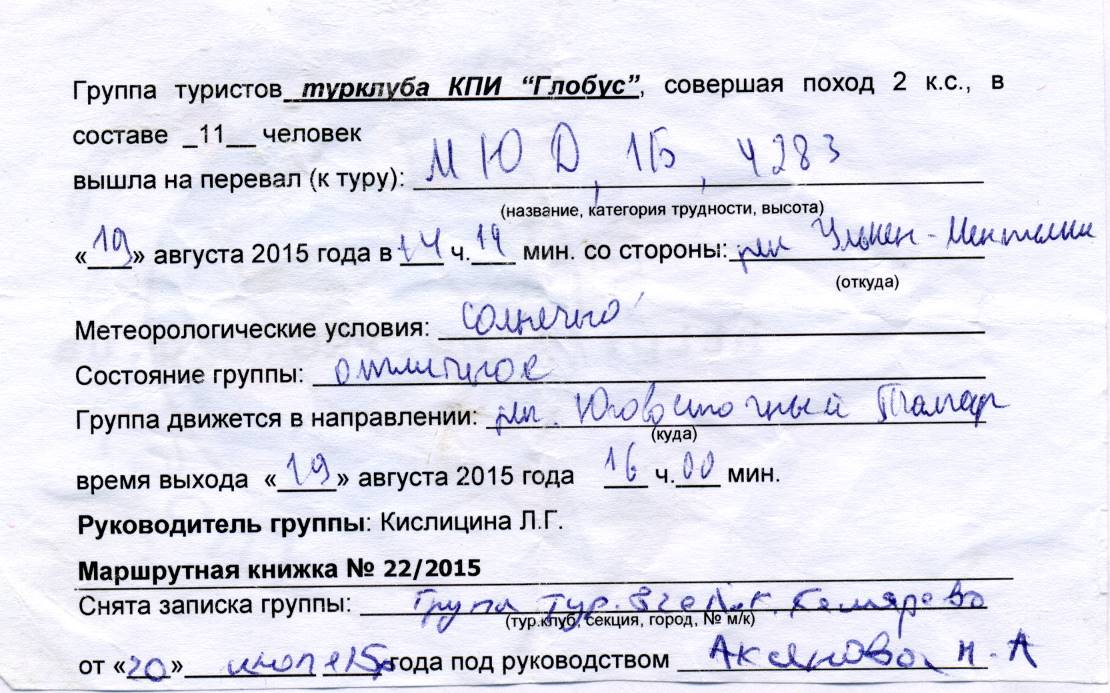 Группа туристов турклуба КПИ “Глобус”, совершая поход 2 к.с., в
составе _11__ человек
вышла на перевал (к туру): МЮД, 1Б, 4283
(название, категория трудности, высота)
«19» августа 2015 года в 14 ч. 19 мин. со стороны: рли Улькен-
(откуда)
Метеорологические условия: солнечно
Состояние группы: отличное
Группа движется в направлении: рлп. Юговосточный Талгар
(куда)
время выхода «19» августа 2015 года 16 ч. 00 мин.
Руководитель группы: Кислицина Л.Г.
Маршрутная книжка № 22/2015
Снята записка группы: Група тур. г. Кемерово
(тур.клуб, секция, город, № м/к)
от «20» июля 15 года под руководством Н.А